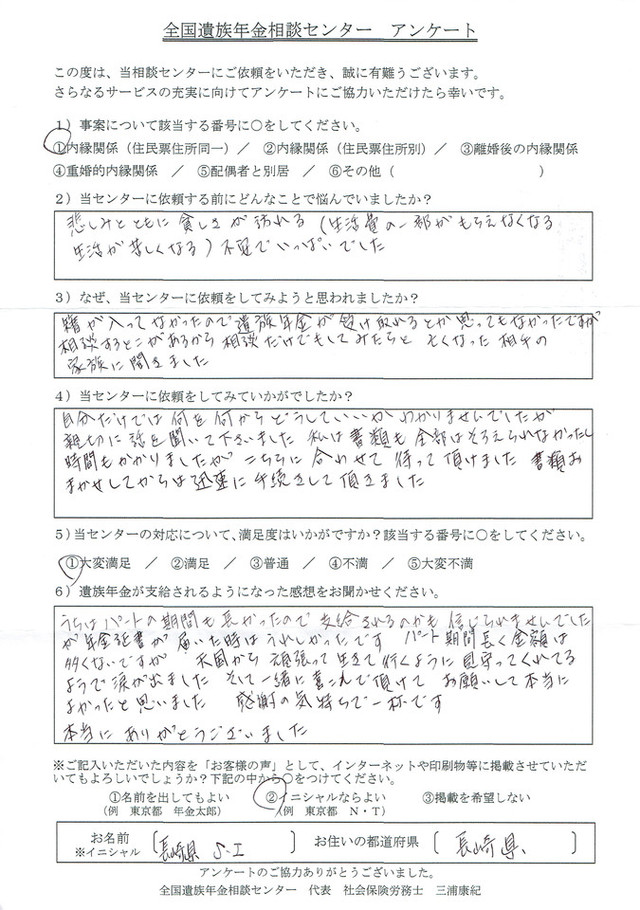 全国遺族年金相談センター アンケート
この度は、当相談センターにご依頼をいただき、誠に有難うございます。
さらなるサービスの充実に向けてアンケートにご協力いただけたら幸いです。
1）事案について該当する番号に○をしてください。
①内縁関係（住民票住所同一）／ ②内縁関係（住民票住所別）／ ③離婚後の内縁関係
④重婚的内縁関係 ／ ⑤配偶者と別居 ／ ⑥その他（ ）
2）当センターに依頼する前にどんなことで悩んでいましたか？
悲しみとともに 貧しさが 訪れる（生活費の一部がもらえなくなる
生活が苦しくなる）不安でいっぱいでした
3）なぜ、当センターに依頼をしてみようと思われましたか？
籍が入ってなかったので遺族年金が受け取れるとか思ってもなかったですが
相談するとこがあるから相談だけでもしてみたらと 亡くなった相手の
家族に聞きました
4）当センターに依頼をしてみていかがでしたか？
自分だけでは何を何からどうしていいかわかりませんでしたが
親切に話を聞いて下さいました 私は書類も全部はそろえられなかったし
時間もかかりましたが こちらに合わせて待って頂けました 書類お
まかせしてからは迅速に手続きして頂きました
5）当センターの対応について、満足度はいかがですか？該当する番号に○をしてください。
①大変満足 ／ ②満足 ／ ③普通 ／ ④不満 ／ ⑤大変不満
6）遺族年金が支給されるようになった感想をお聞かせください。
うちはパートの期間も長かったので支給されるのかも信じられませんでした
が年金証書が届いた時はうれしかったです パート期間長く金額は
多くないですが 天国から頑張って生きて行くように見守ってくれてる
ようで涙が出ました そして一緒に喜こんで頂けて お願いして本当に
よかったと思いました 感謝の気持ちで一杯です
本当にありがとうございました
※ご記入いただいた内容を「お客様の声」として、インターネットや印刷物等に掲載させていただ
いてもよろしいでしょうか？下記の中から○をつけてください。
①名前を出してもよい ②イニシャルならよい ③掲載を希望しない
（例 東京都 年金太郎） （例 東京都 N・T）
お名前
※イニシャル 〔 長崎県 S・I 〕 お住いの都道府県 〔 長崎県 〕
アンケートのご協力ありがとうございました。
全国遺族年金相談センター 代表 社会保険労務士 三浦康紀